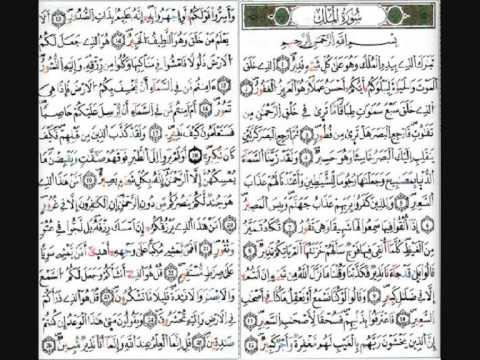 سورة الملك
بسم الله الرحمن الرحيم
تبرك الذي بيده الملك وهو على كل شيء قدير ١ الذي خلق
الموت والحيوة ليبلوكم أيكم أحسن عملا وهو العزيز الغفور ٢
الذي خلق سبع سموت طباقا ما ترى في خلق الرحمن من
تفوت فارجع البصر هل ترى من فطور ٣ ثم ارجع البصر كرتين
ينقلب إليك البصر خاسئا وهو حسير ٤ ولقد زينا السماء
الدنيا بمصبيح وجعلنها رجوما للشيطين وأعتدنا لهم عذاب
السعير ٥ وللذين كفروا بربهم عذاب جهنم وبئس المصير ٦
إذا ألقوا فيها سمعوا لها شهيقا وهي تفور ٧ تكاد تميز
من الغيظ كلما ألقي فيها فوج سألهم خزنتها ألم يأتكم نذير ٨
قالوا بلى قد جاءنا نذير فكذبنا وقلنا ما نزل الله من شيء إن أنتم
إلا في ضلل كبير ٩ وقالوا لو كنا نسمع أو نعقل ما كنا في أصحب
السعير ١٠ فاعترفوا بذنبهم فسحقا لأصحب السعير ١١
إن الذين يخشون ربهم بالغيب لهم مغفرة وأجر كبير ١٢
وأسروا قولكم أو اجهروا به إنه عليم بذات الصدور ١٣ ألا
يعلم من خلق وهو اللطيف الخبير ١٤ هو الذي جعل لكم
الأرض ذلولا فامشوا في مناكبها وكلوا من رزقه وإليه النشور
١٥ ءأمنتم من في السماء أن يخسف بكم الأرض فإذا هي
تمور ١٦ أم أمنتم من في السماء أن يرسل عليكم حاصبا
فستعلمون كيف نذير ١٧ ولقد كذب الذين من قبلهم فكيف
كان نكير ١٨ أولم يروا إلى الطير فوقهم صفت ويقبضن ما
يمسكهن إلا الرحمن إنه بكل شيء بصير ١٩ أمن هذا الذي
هو جند لكم ينصركم من دون الرحمن إن الكفرون إلا في غرور
٢٠ أمن هذا الذي يرزقكم إن أمسك رزقه بل لجوا في عتو
ونفور ٢١ أفمن يمشي مكبا على وجهه أهدى أمن يمشي سويا
على صرط مستقيم ٢٢ قل هو الذي أنشأكم وجعل لكم السمع
والأبصر والأفئدة قليلا ما تشكرون ٢٣ قل هو الذي ذرأكم
في الأرض وإليه تحشرون ٢٤ ويقولون متى هذا الوعد إن كنتم
صدقين ٢٥ قل إنما العلم عند الله وإنما أنا نذير مبين ٢٦